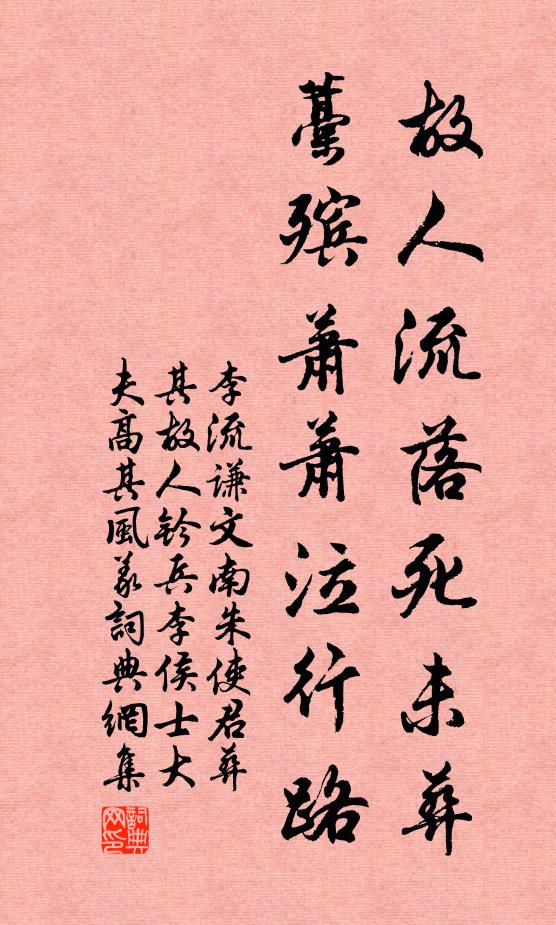 故人流落死未葬
藁殯蕭蕭泣行路
李流謙文南朱使君葬
其故人鈐兵李侯士大
夫高其風義詞典網集
詞典網印